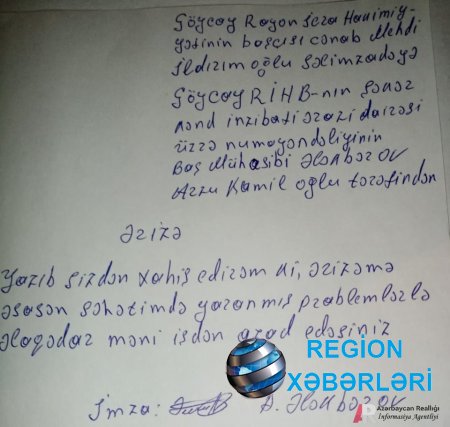 Göyçay Rayon İcra Hakimiy-
yətinin başçısı cənab Mehdi
İldırım oğlu Səlimzadəyə
Göyçay RİHB-nın şəhər
kənd inzibati ərazi dairəsi
üzrə numayəndəliyinin
Baş Mühasibi Ələkbərov
Arzu Kamil oğlu tərəfindən
Ərizə
Yazıb sizdən xahiş edirəm ki, ərizəmə
əsasən səhətimdə yaranmış problemlərlə
əlaqədar məni işdən azad edəsiniz
REGION
XƏBƏRLƏRİ
İmza: A. Ələkbərov
Azərbaycan Reallığı
İnformasiya Agentliyi